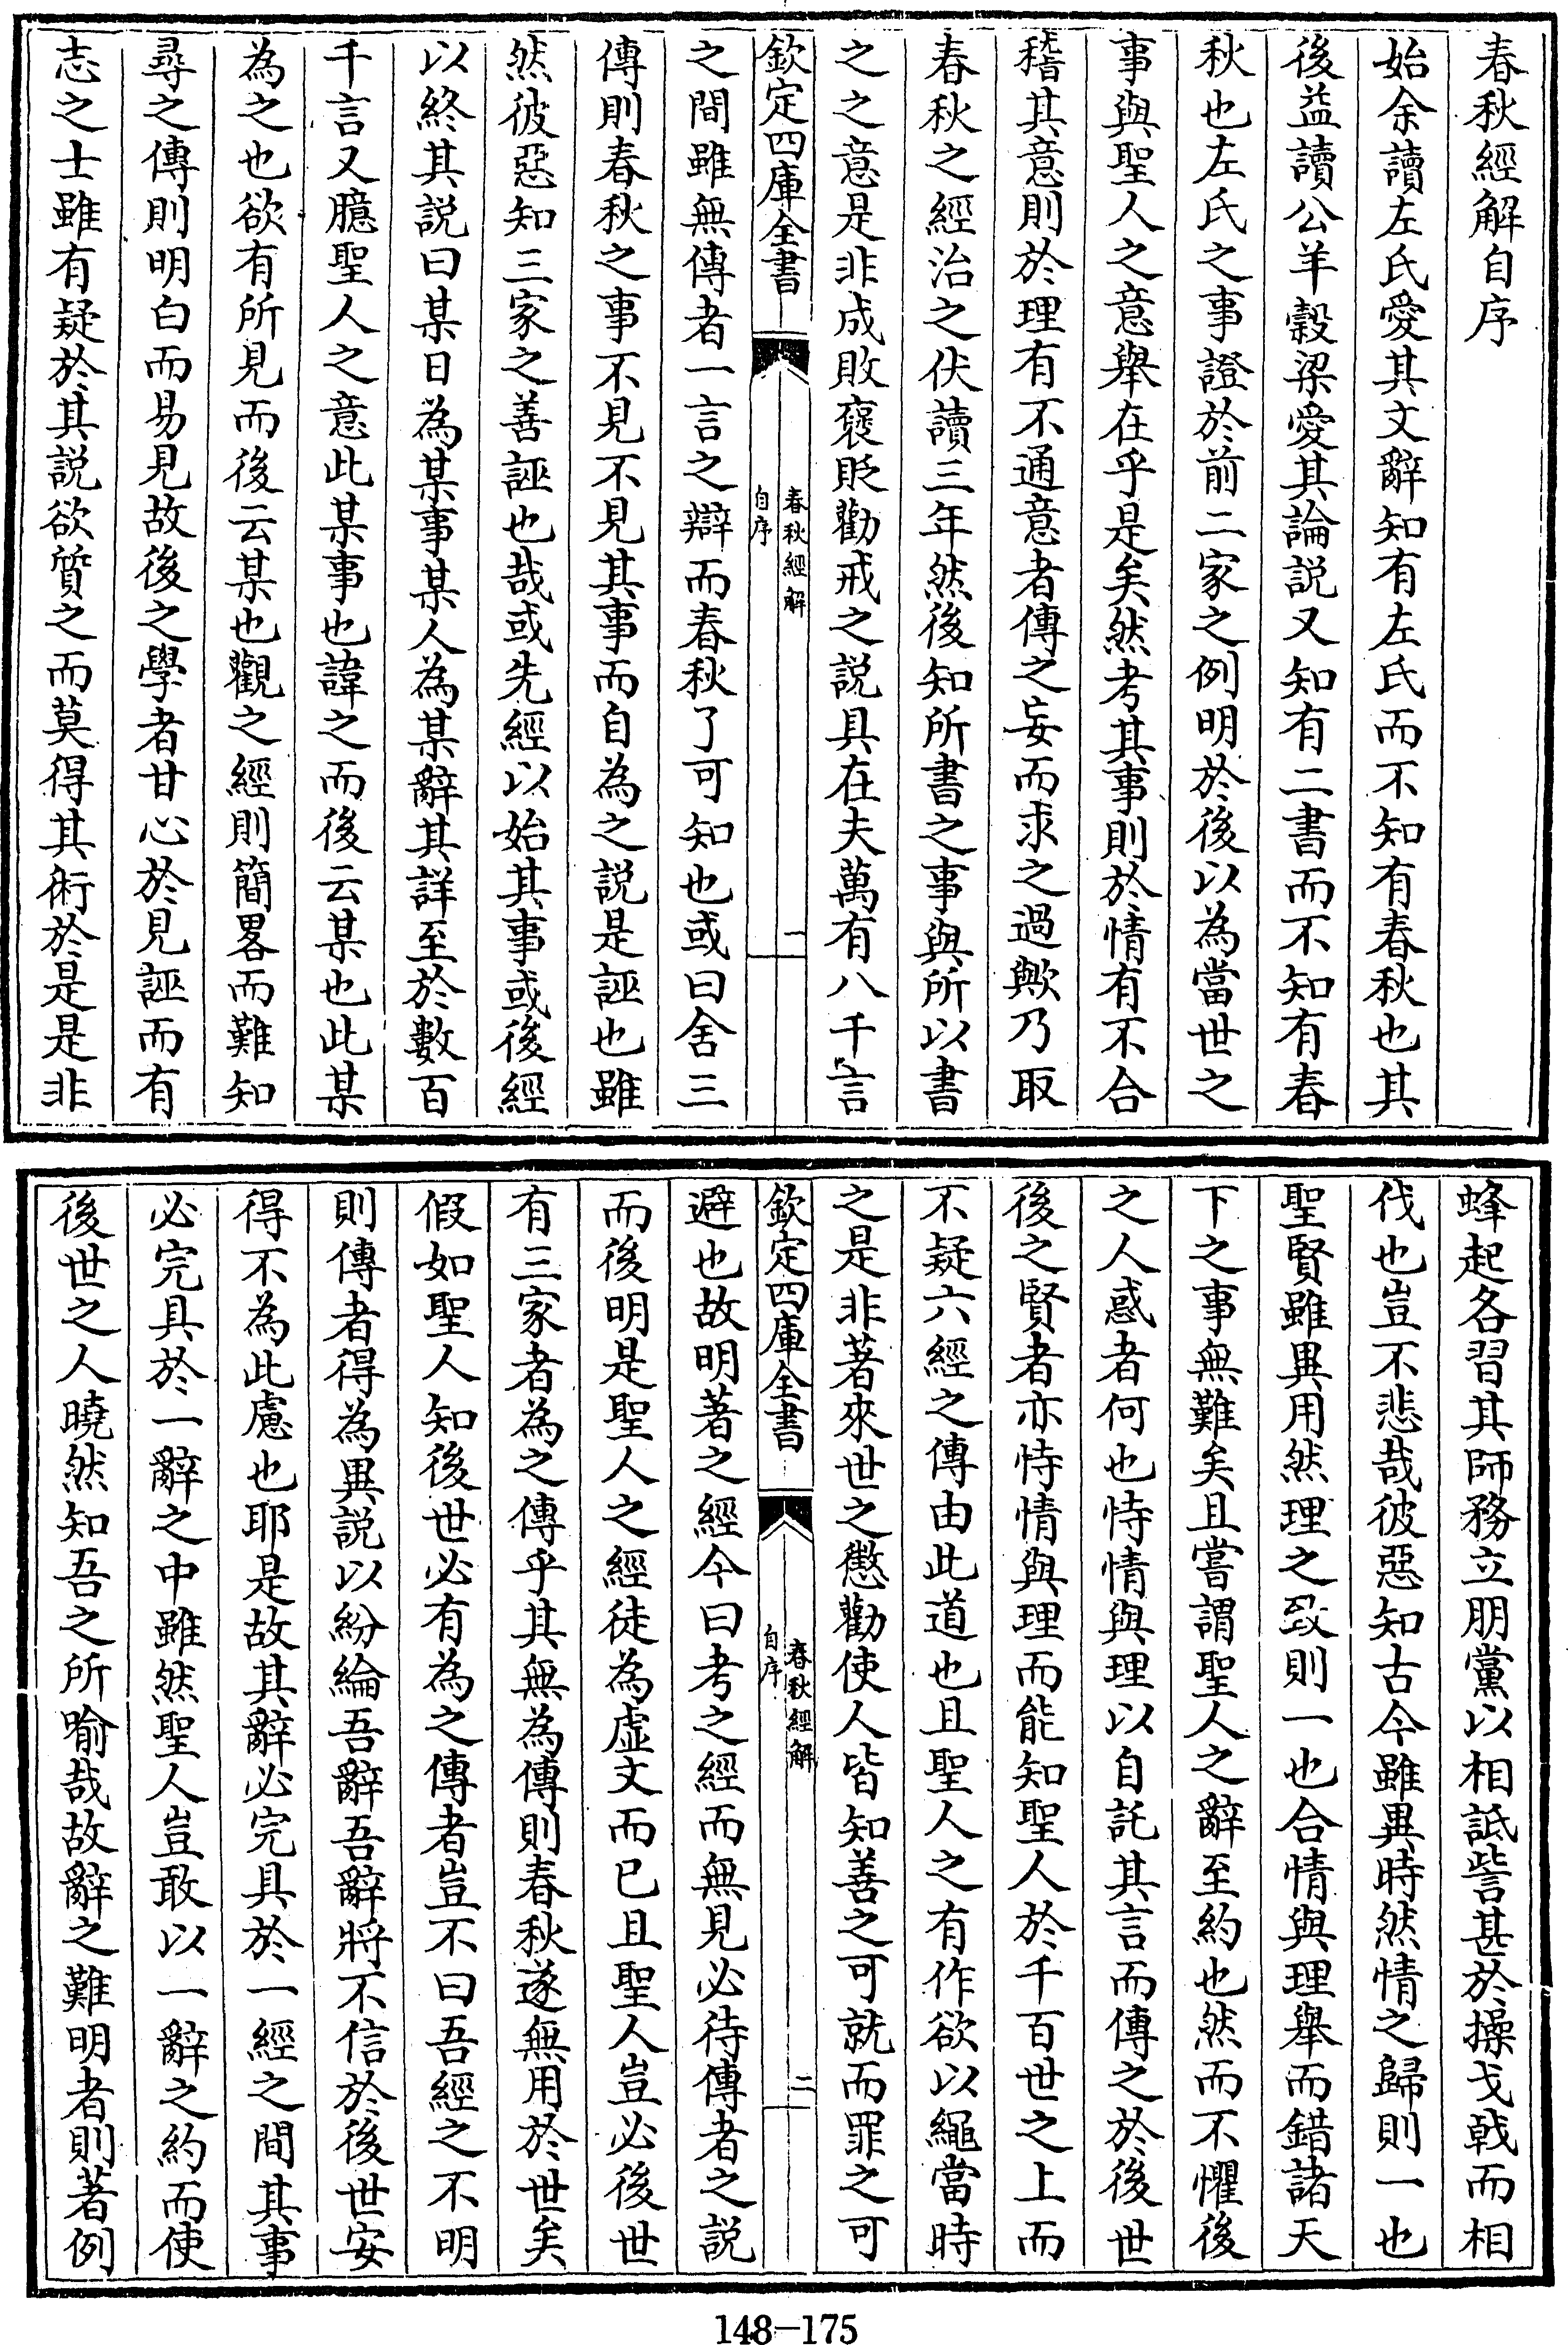 春秋經解自序
始余讀左氏愛其文辭知有左氏而不知有春秋也其
後益讀公羊糓梁愛其論說又知有二書而不知有春
秋也左氏之事證於前二家之例明於後以為當世之
事與聖人之意舉在乎是矣然考其事則於情有不合
稽其意則於理有不通意者傳之妄而求之過歟乃取
春秋之經治之伏讀三年然後知所書之事與所以書
之之意是非成敗褒貶勸戒之說具在夫萬有八千言
欽定四庫全書
春秋經解
自序
一
之間雖無傳者一言之辯而春秋了可知也或曰舍三
傳則春秋之事不見不見其事而自為之說是誣也雖
然彼惡知三家之善誣也哉或先經以始其事或後經
以終其說曰某日為某事某人為某辭其詳至於數百
千言又臆聖人之意此某事也諱之而後云某也此某
為之也欲有所見而後云某也觀之經則簡畧而難知
尋之傳則明白而易見故後之學者甘心於見誣而有
志之士雖有疑於其說欲質之而莫得其術於是是非
蜂起各習其師務立朋黨以相詆訾甚於操戈戟而相
伐也豈不悲哉彼惡知古今雖異時然情之歸則一也
聖賢雖異用然理之致則一也合情與理舉而錯諸天
下之事無難矣且嘗謂聖人之辭至約也然而不懼後
之人惑者何也恃情與理以自託其言而傳之於後世
後之賢者亦恃情與理而能知聖人於千百世之上而
不疑六經之傳由此道也且聖人之有作欲以繩當時
之是非著來世之懲勸使人皆知善之可就而罪之可
欽定四庫全書
春秋經解
自序
二
避也故明著之經今曰考之經而無見必待傳者之說
而後明是聖人之經徒為虛文而已且聖人豈必後世
有三家者為之傳乎其無為傳則春秋遂無用於世矣
假如聖人知後世必有為之傳者豈不曰吾經之不明
則傳者得為異說以紛綸吾辭吾辭將不信於後世安
得不為此慮也耶是故其辭必完具於一經之間其事
必完具於一辭之中雖然聖人豈敢以一辭之約而使
後世之人曉然知吾之所喻哉故辭之難明者則著例
148-175